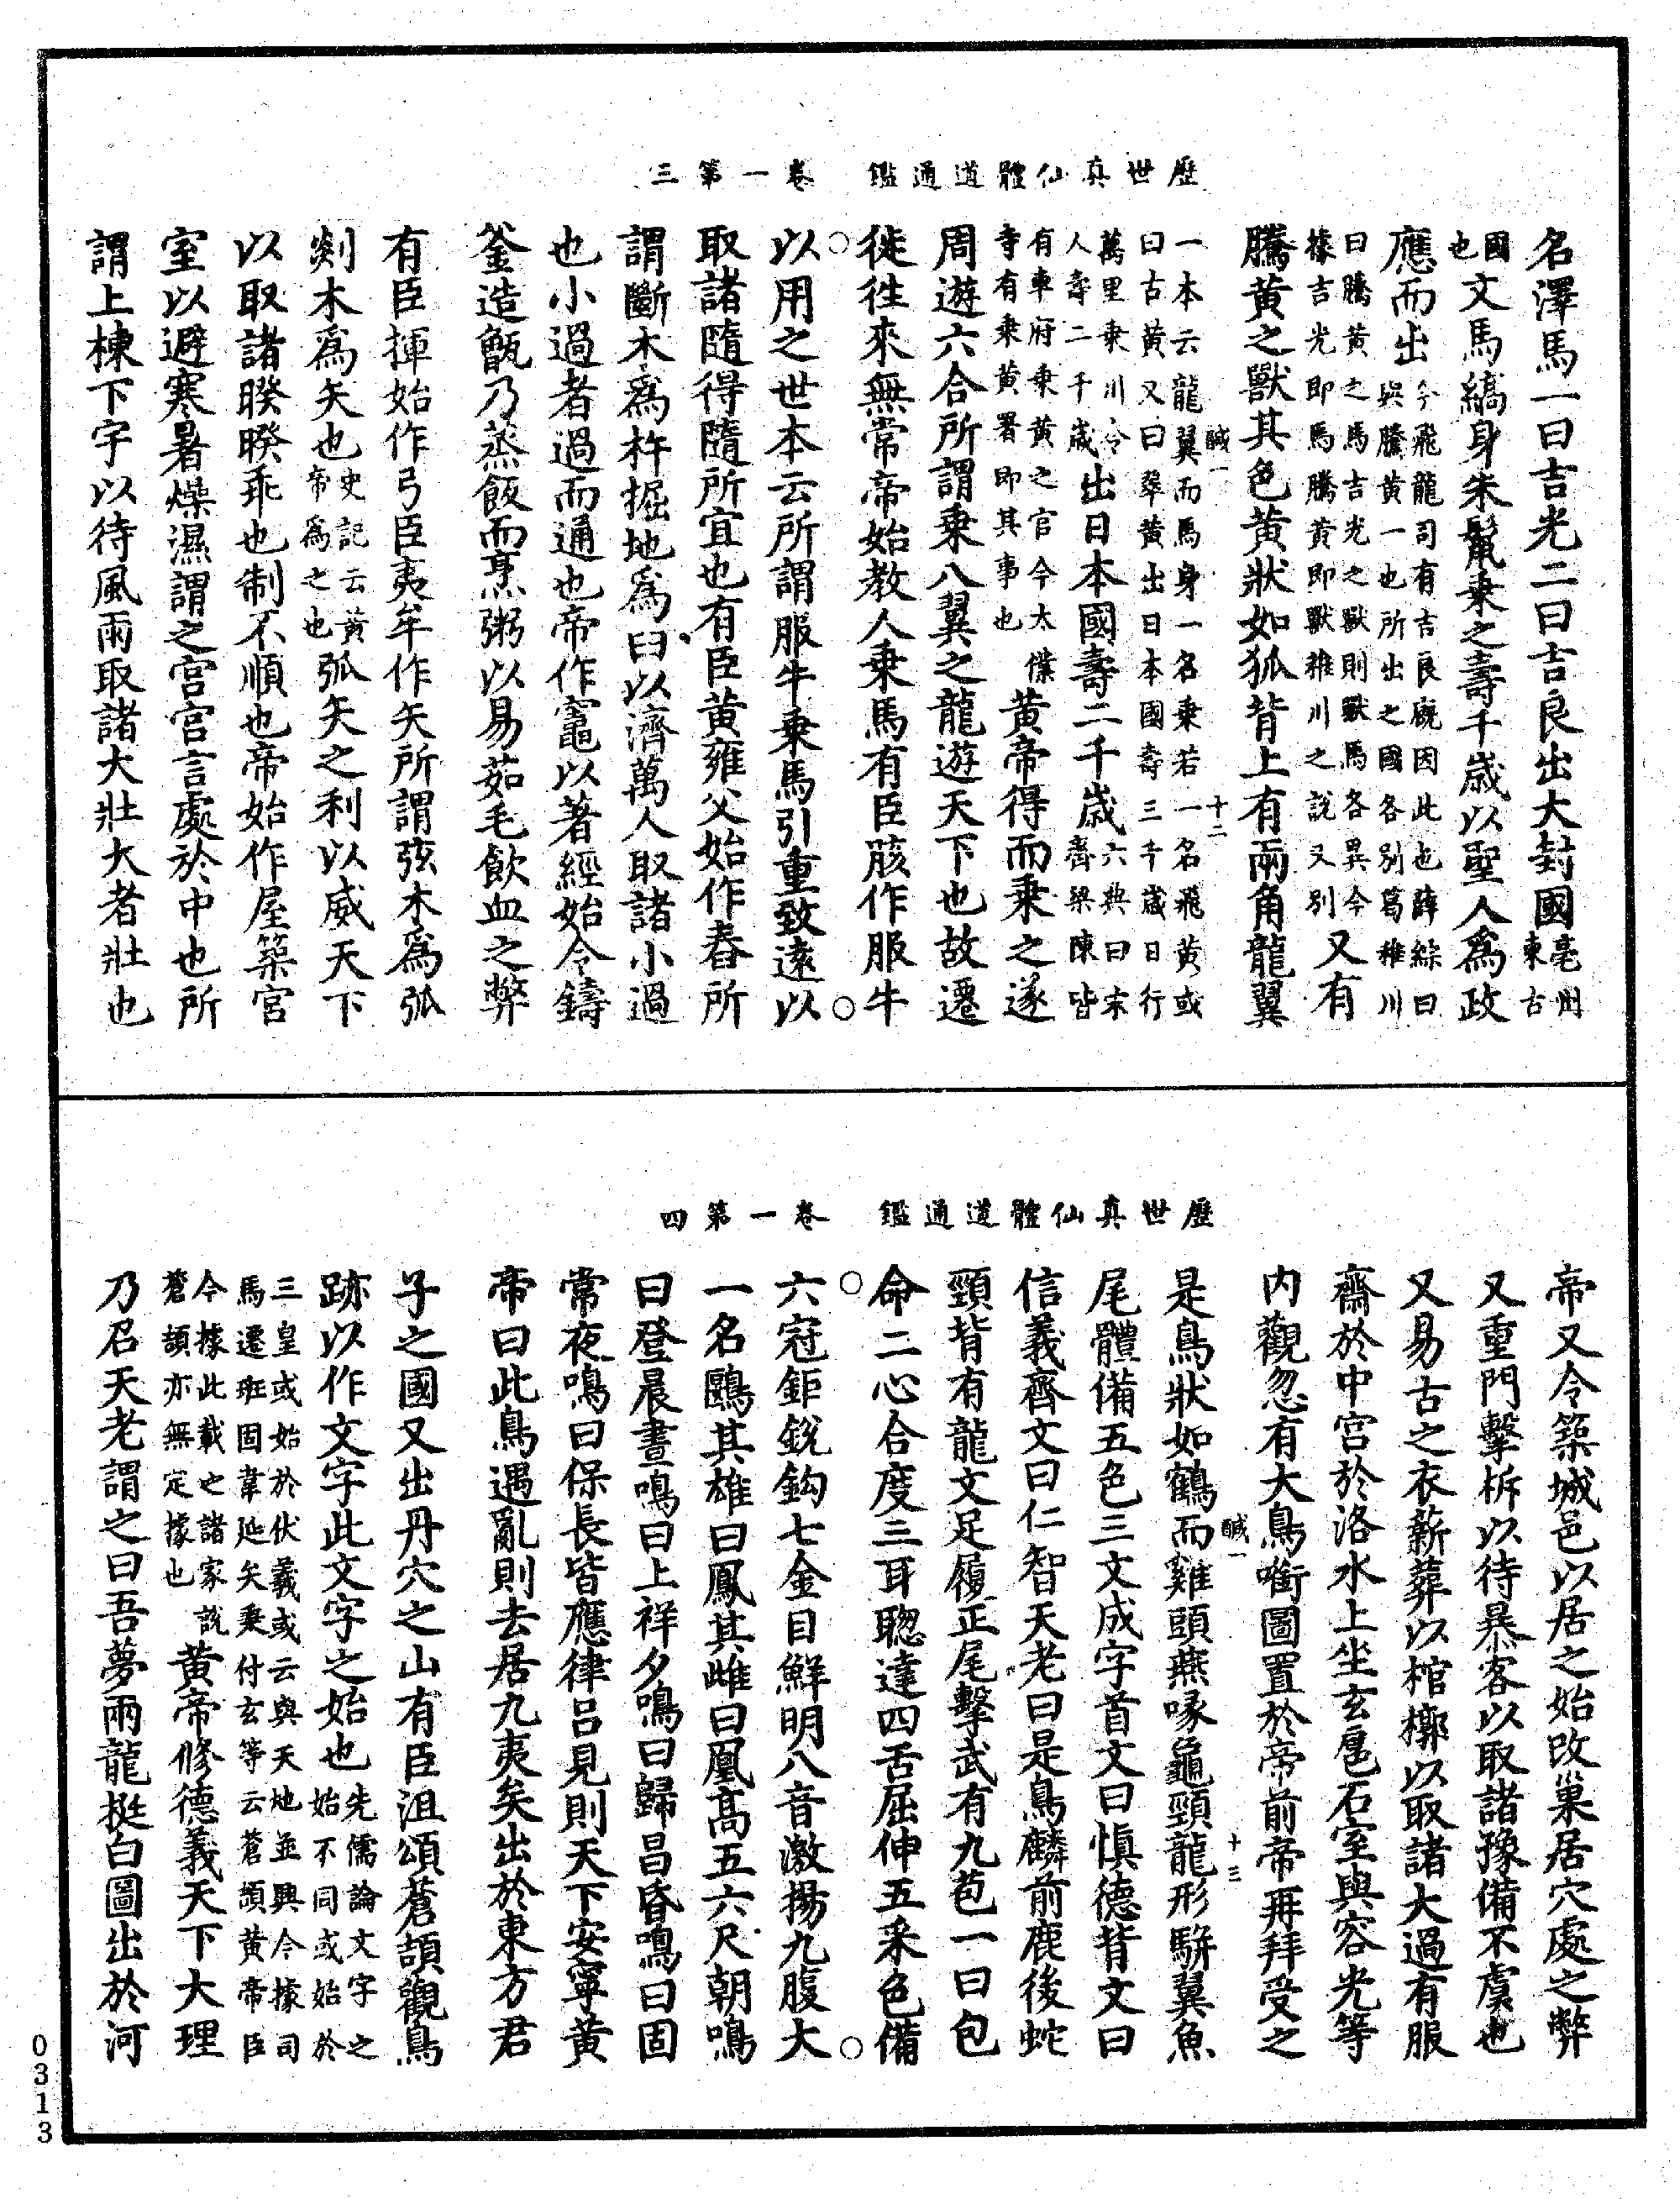 歷世真仙體道通鑑　卷一第三
名澤馬一曰吉光二曰吉良出大封國亳州東古
國也文馬縞身朱鬣乘之壽千歲以聖人為政
應而出今飛龍司有吉良廐因此也薛綜曰與騰黃一也所出之國各別葛稚川
曰騰黃之馬吉光之獸則獸馬各異今據吉光即馬騰黃即獸稚川之說又別又有
騰黃之獸其色黃狀如狐背上有兩角龍翼
醎一　十二
一本云龍翼而馬身一名乘若一名飛黃或曰古黃又曰翠黃出日本國壽三千歲日行
萬里乘川令人壽二千歲出日本國壽二千歲六典曰宋齊梁陳皆
有車府乘黃之官今太僕寺有乘黃署即其事也黃帝得而乘之遂
周遊六合所謂乘八翼之龍遊天下也故遷
徙往來無常帝始教人乘馬有臣胲作服牛
以用之世本云所謂服牛乘馬引重致遠以
取諸隨得隨所宜也有臣黃雍父始作舂所
謂斷木為杵掘地為臼以濟萬人取諸小過
也小過者過而通也帝作竈以著經始令鑄
釜造甑乃蒸飯而烹粥以易茹毛飲血之弊
有臣揮始作弓臣夷牟作矢所謂弦木為弧
剡木為矢也史記云黃帝為之也弧矢之利以威天下
以取諸睽睽乖也制不順也帝始作屋築宮
室以避寒暑燥濕謂之宮宮言處於中也所
謂上棟下宇以待風雨取諸大壯大者壯也
歷世真仙體道通鑑　卷一第四
帝又令築城邑以居之始改巢居穴處之弊
又重門擊柝以待暴客以取諸豫備不虞也
又易古之衣薪葬以棺槨以取諸大過有服
齋於中宮於洛水上坐玄扈石室與容光等
內觀忽有大鳥銜圖置於帝前帝再拜受之
醎一　十三
是鳥狀如鶴而雞頭燕喙龜頸龍形駢翼魚
尾體備五色三文成字首文曰慎德背文曰
信義膺文曰仁智天老曰是鳥麟前鹿後蛇
頸背有龍文足履正尾擊武有九苞一曰包
命二心合度三耳聰達四舌屈伸五采色備
六冠鉅銳鈎七金目鮮明八音激揚九腹大
一名鶠其雄曰鳳其雌曰凰高五六尺朝鳴
曰登晨晝鳴曰上祥夕鳴曰歸昌昏鳴曰固
常夜鳴曰保長皆應律呂見則天下安寧黃
帝曰此鳥遇亂則去居九夷矣出於東方君
子之國又出丹穴之山有臣沮頌蒼頡觀鳥
跡以作文字此文字之始也先儒論文字之始不同或始於
三皇或始於伏羲或云與天地並興今據司馬遷班固韋延矢秉付玄等云蒼頡黃帝臣
今據此載也諸家說蒼頡亦無定據也黃帝修德義天下大理
乃召天老謂之曰吾夢兩龍挺白圖出於河
0313